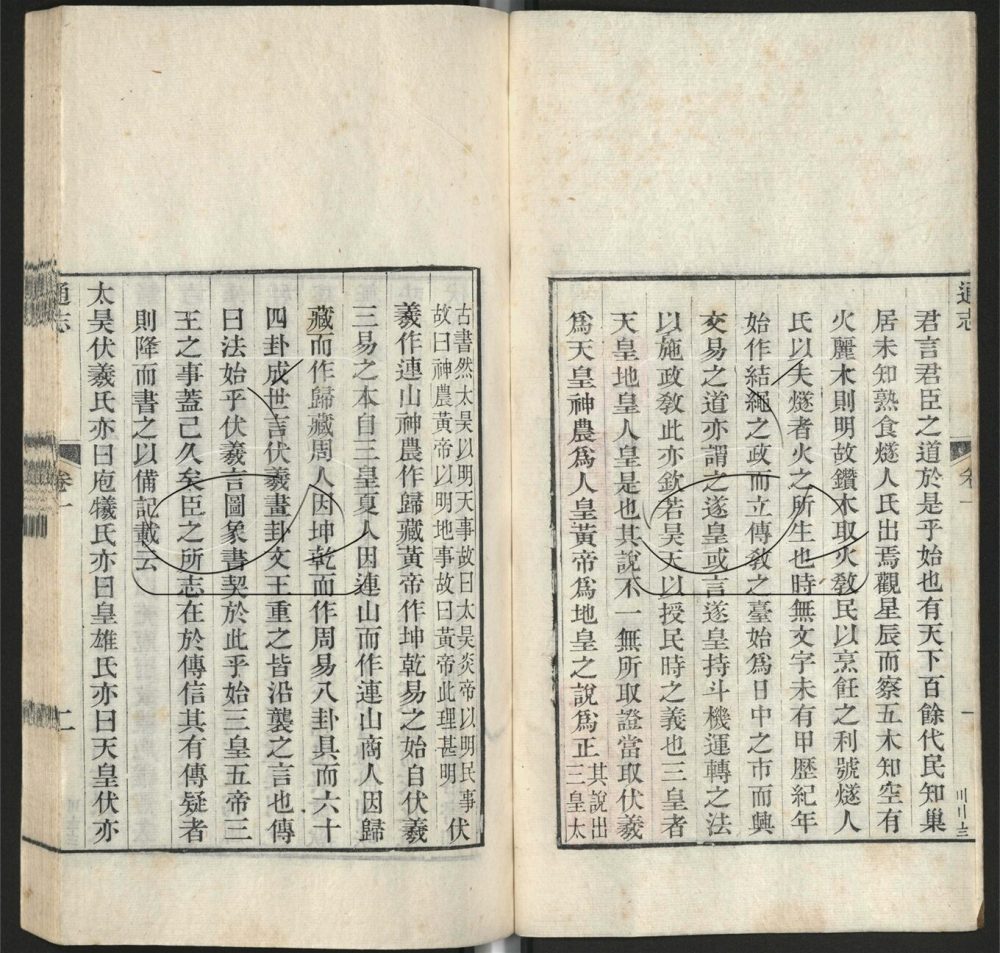 通志
卷一
一
君言君臣之道於是乎始也有天下百餘代民知巢
居未知熟食燧人氏出焉觀星辰而察五木知空有
火麗木則明故鑽木取火敎民以烹飪之利號燧人
氏以夫燧者火之所生也時無文字未有甲歷紀年
始作結繩之政而立傳敎之臺始爲日中之市而興
交易之道亦謂之遂皇或言遂皇持斗機運轉之法
以施政敎此亦欽若昊天以授民時之義也三皇者
天皇地皇人皇是也其說不一無所取證當取伏羲
爲天皇神農爲人皇黃帝爲地皇之說爲正其說出三皇太
古書然太昊以明天事故曰太昊炎帝以明民事
故曰神農黃帝以明地事故曰黃帝此理甚明
伏羲作連山神農作歸藏黃帝作坤乾易之始自伏羲
三易之本自三皇夏人因連山而作連山商人因歸
藏而作歸藏周人因坤乾而作周易八卦具而六十
四卦成世言伏羲畫卦文王重之皆沿襲之言也傳
曰法始乎伏羲言圖象書契於此乎始三皇五帝三
王之事蓋已久矣臣之所志在於傳信其有傳疑者
則降而書之以備記載云
太昊伏羲氏亦曰庖犧氏亦曰皇雄氏亦曰天皇伏亦
通志
卷一
二